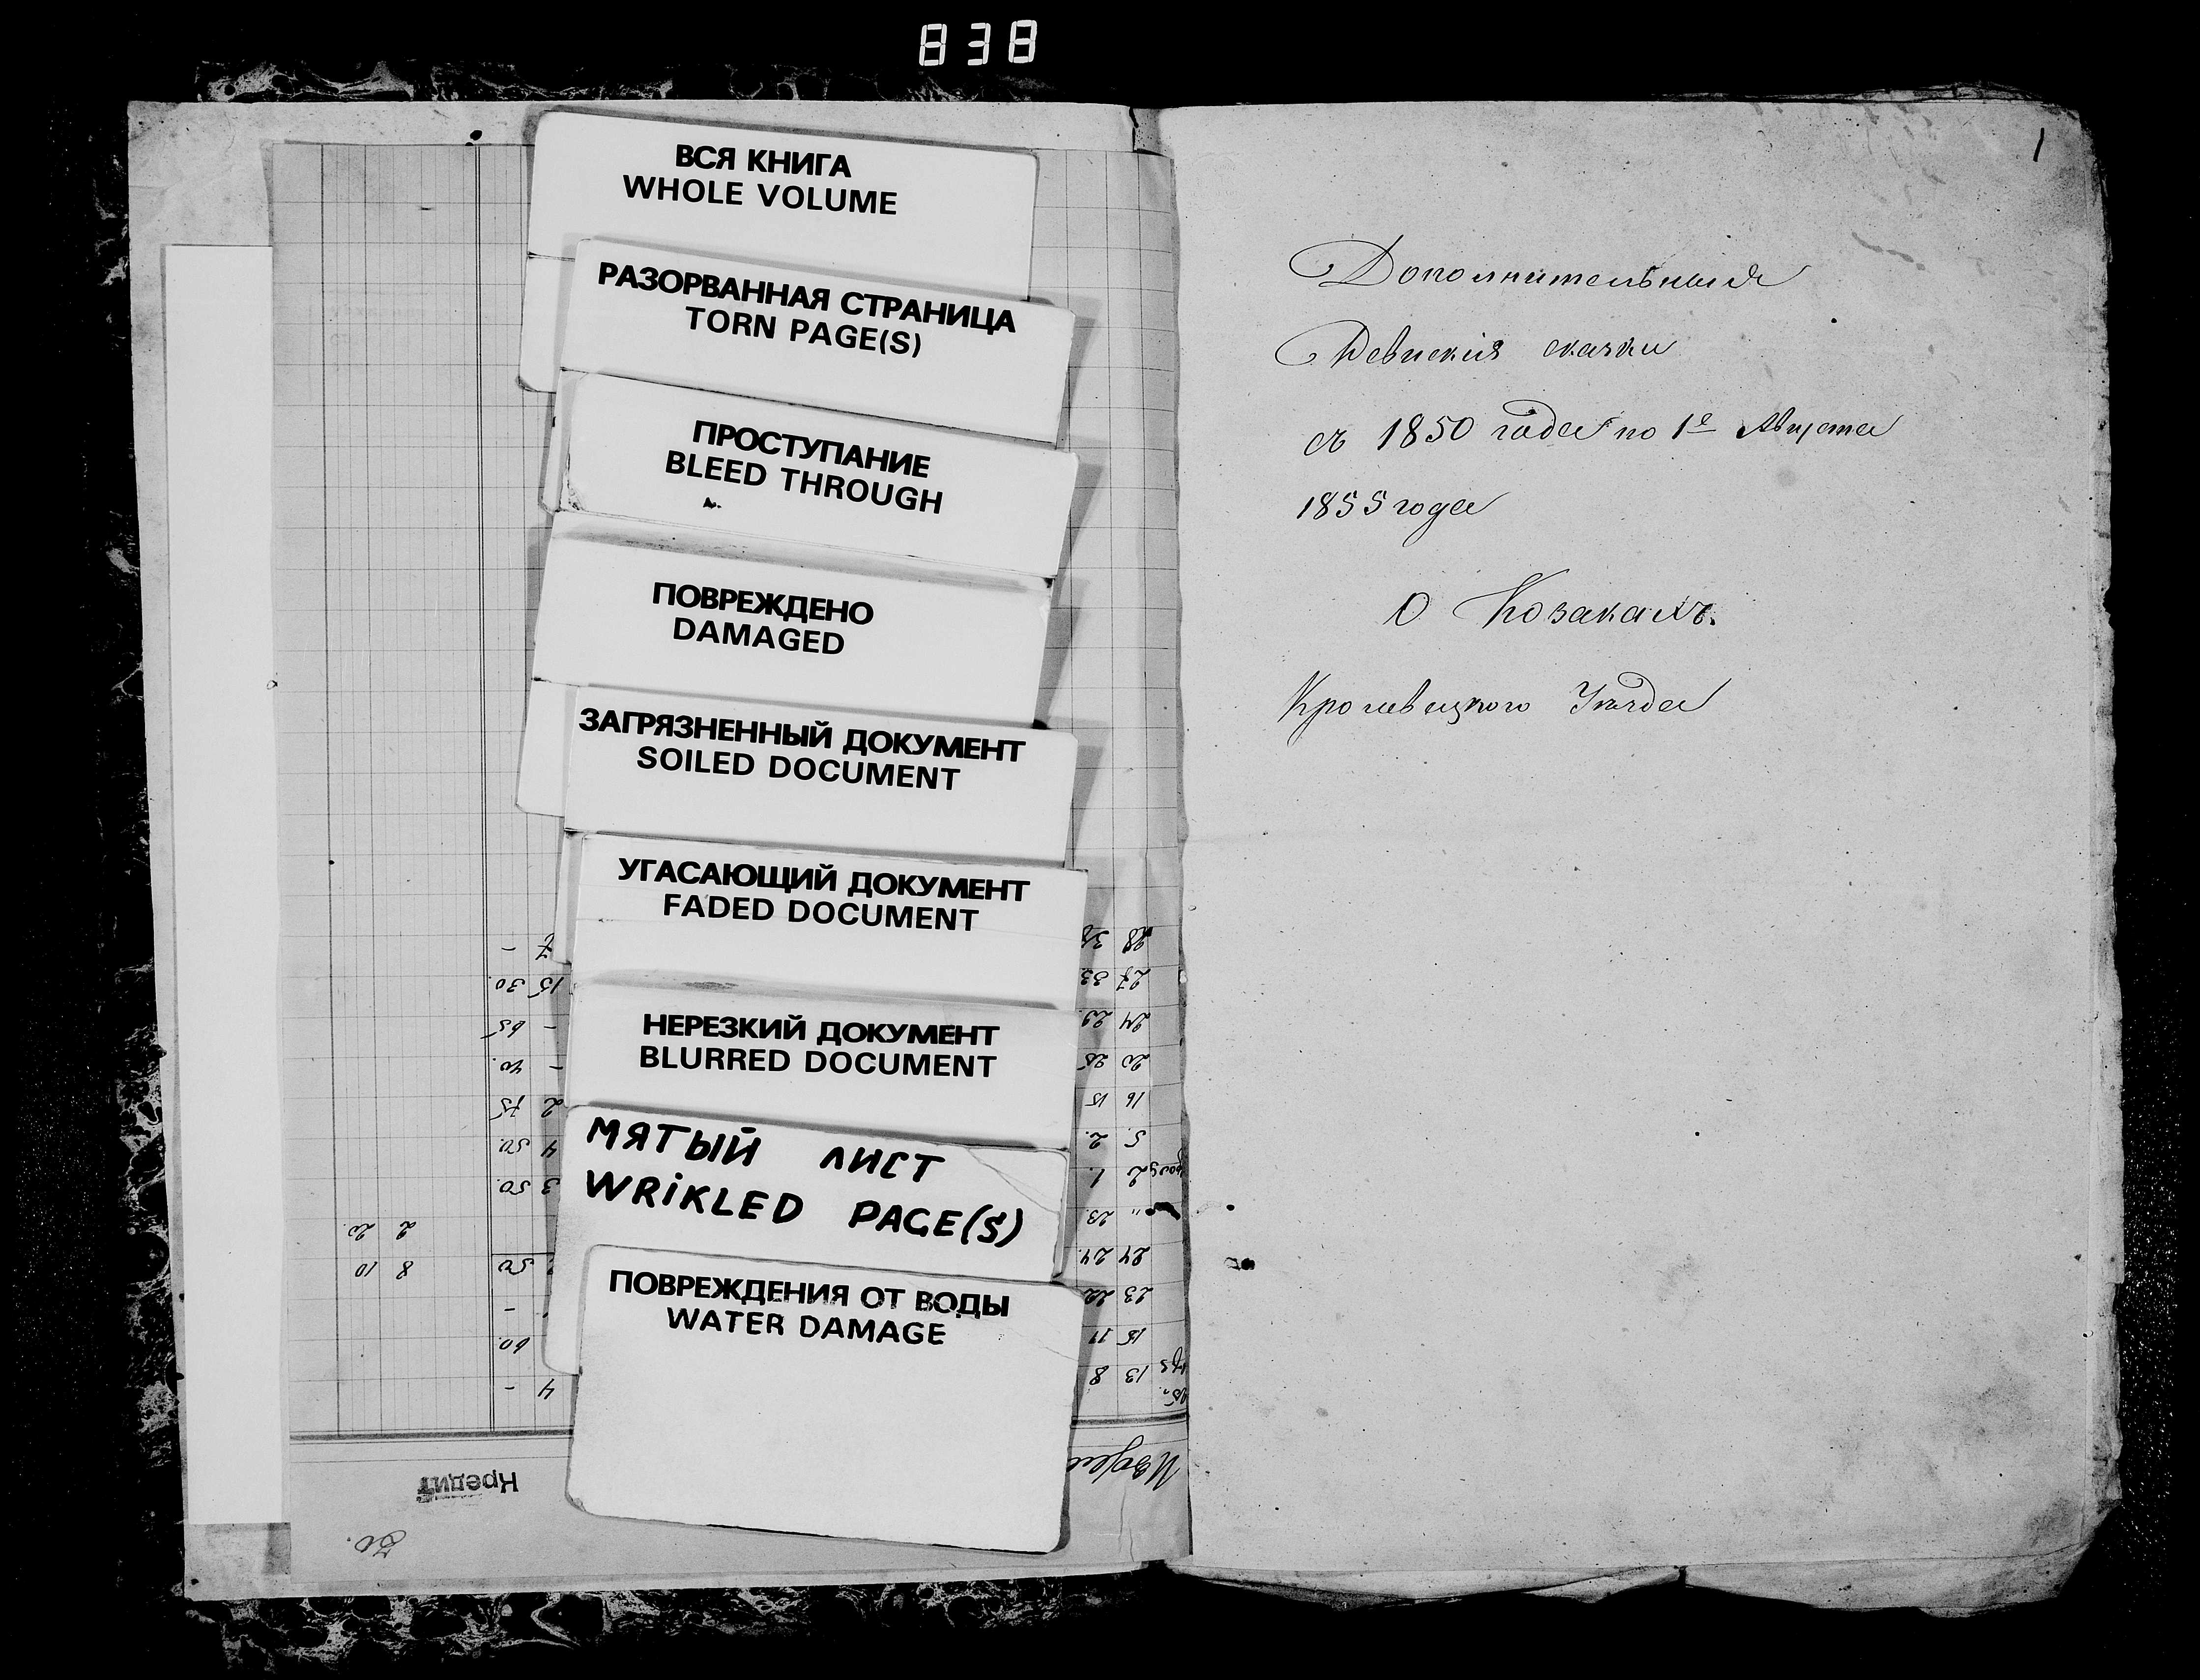 838
ВСЯ КНИГА
WHOLE VOLUME
РАЗОРВАННАЯ СТРАНИЦА
TORN PAGE(S)
ПРОСТУПАНИЕ
BLEED THROUGH
ПОВРЕЖДЕНО
DAMAGED
ЗАГРЯЗНЕННЫЙ ДОКУМЕНТ
SOILED DOCUMENT
УГАСАЮЩИЙ ДОКУМЕНТ
FADED DOCUMENT
НЕРЕЗКИЙ ДОКУМЕНТ
BLURRED DOCUMENT
МЯТЫЙ ЛИСТ
WRIKLED PAGE(S)
ПОВРЕЖДЕНИЯ ОТ ВОДЫ
WATER DAMAGE
Кредит
30.
4 -
60
50 8 10
2 20.
3 50.
4 50.
2 75
- 40.
- 65
15 30
7 -
13 8
15 11
23 22
24 24.
" 23.
2 1.
5. 2.
16 15
20 25
24 29.
27 33.
1
Дополнительныя
Ревизскія сказки
съ 1850 года по 1е Августа
1855 года
О Козакахъ.
Кролевецкого Уезда